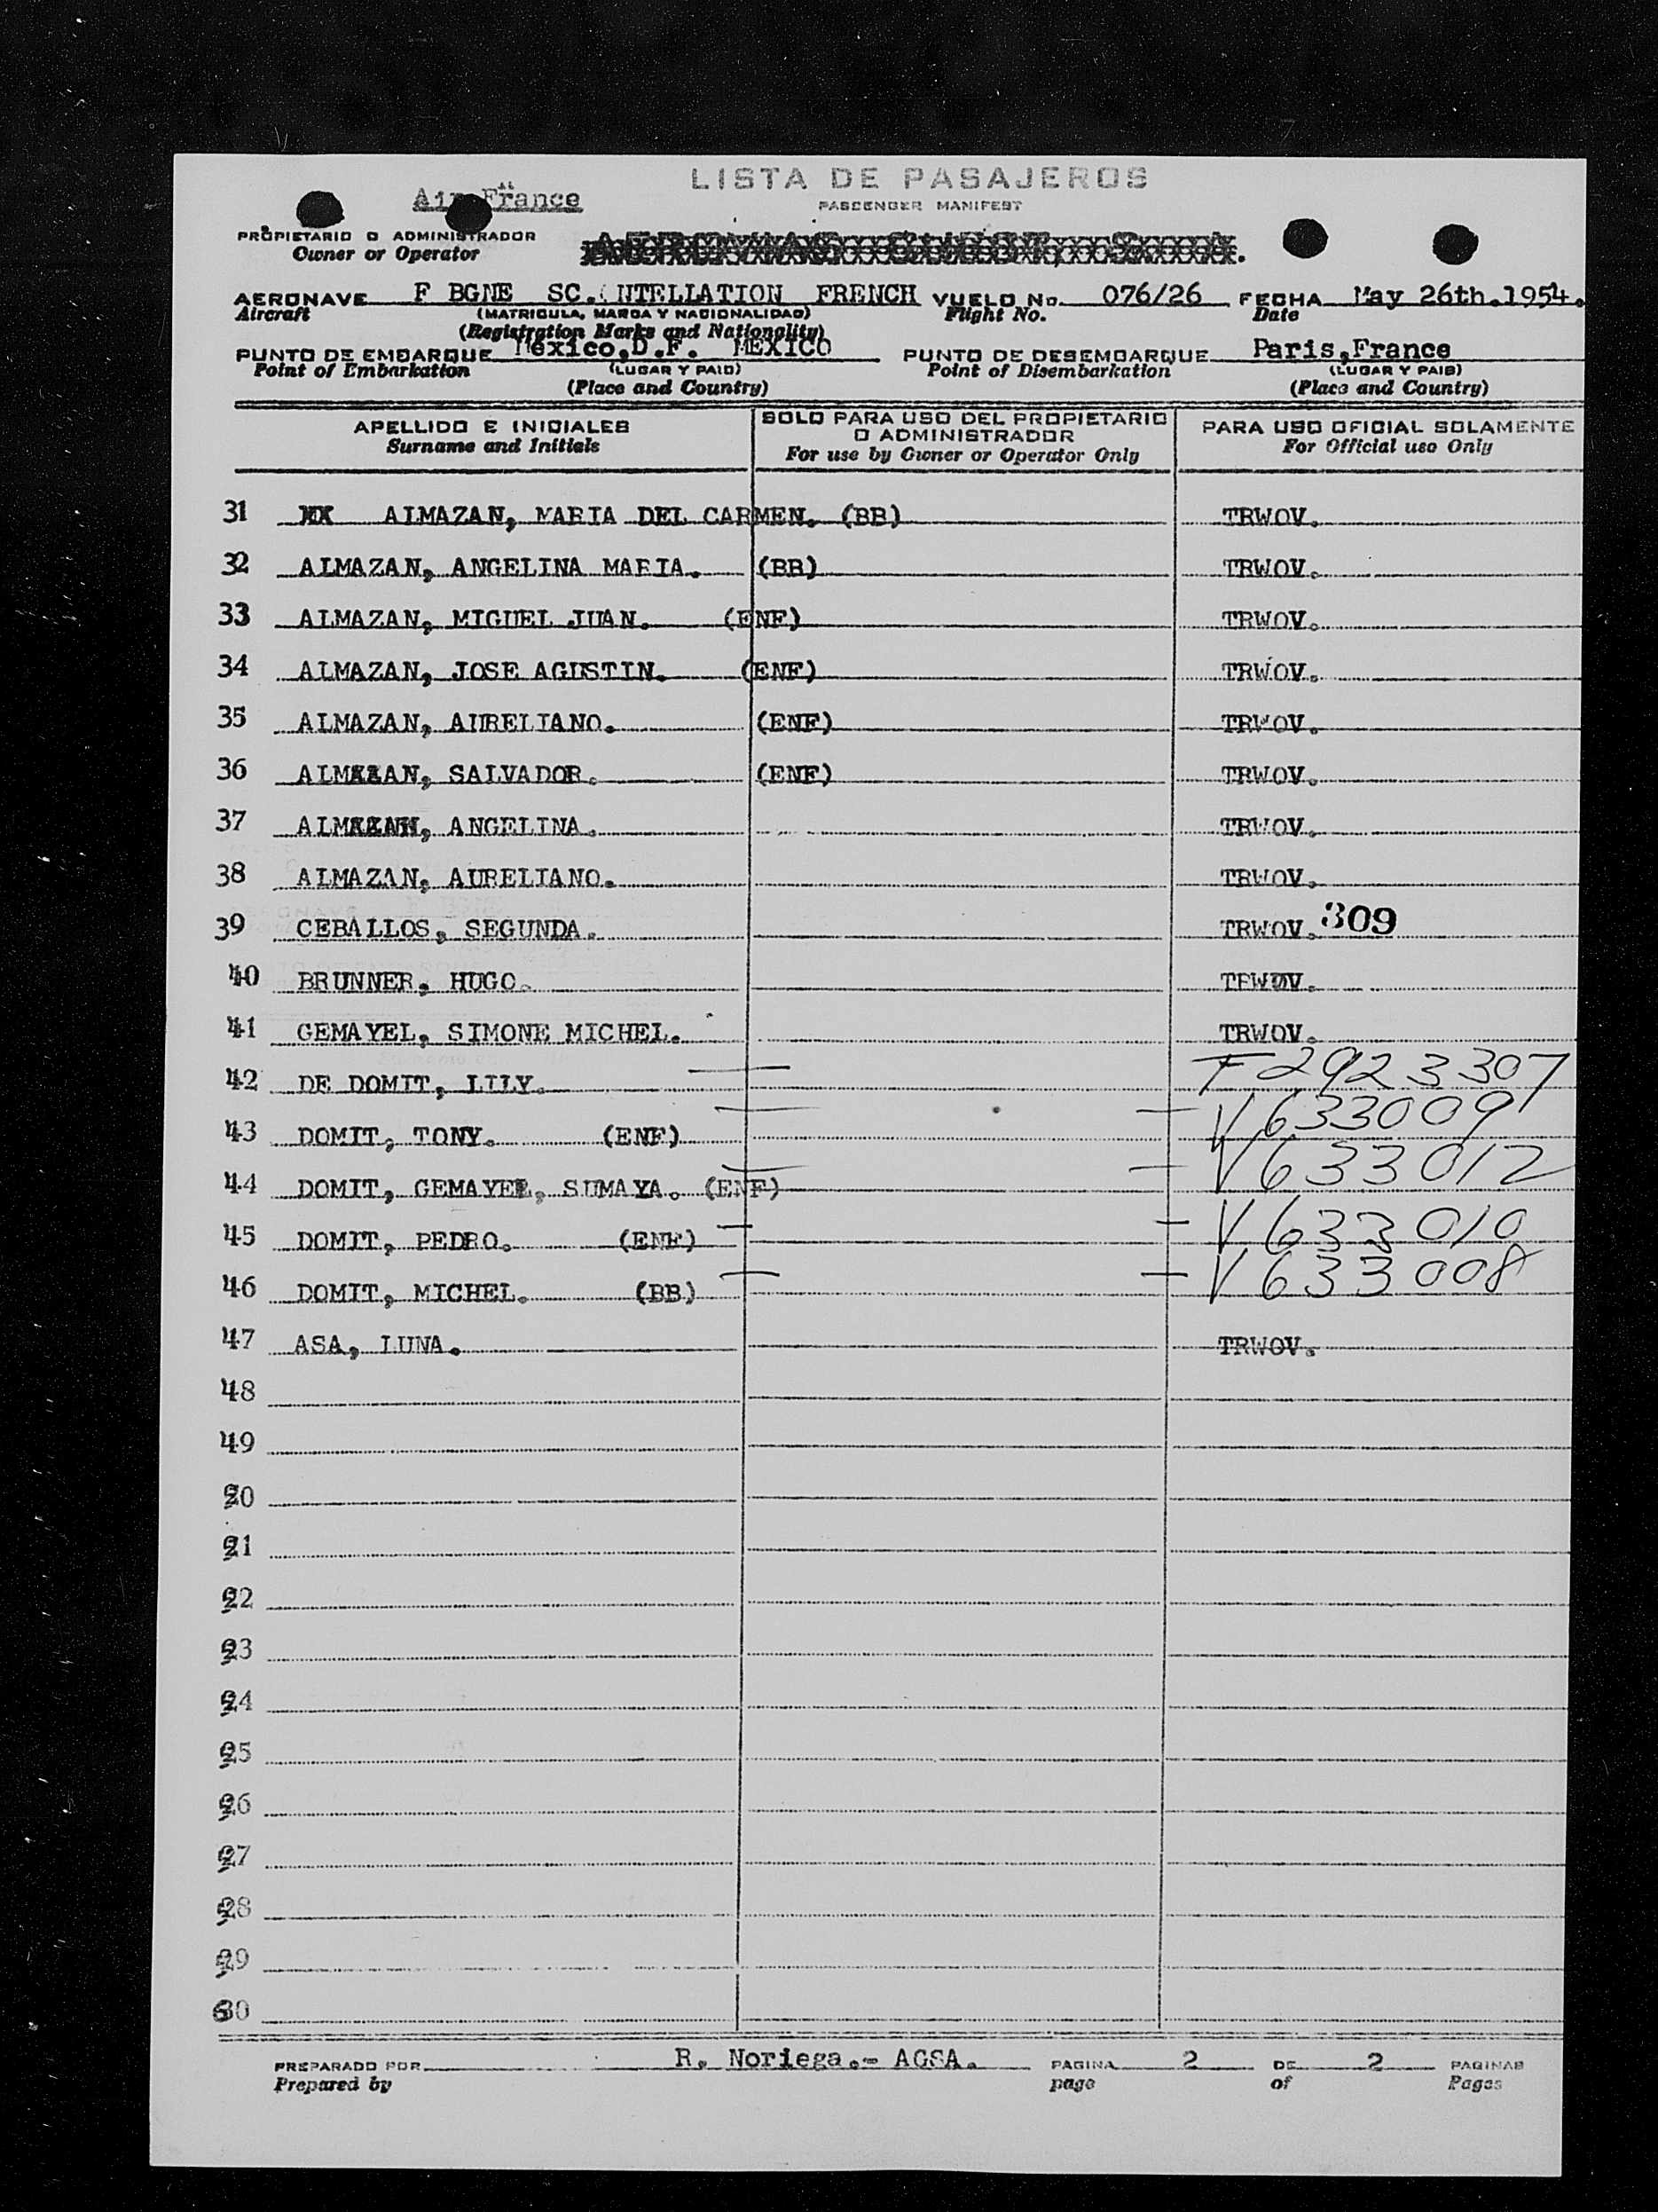 LISTA DE PASAJEROS
PASSENGER MANIFEST
Air France
PROPIETARIO O ADMINISTRADOR
Owner or Operator
AERONAVE F BGNE SC. NTELLATION FRENCH VUELO No. 076/26 FECHA May 26th.1954.
Aircraft (MATRICULA, MARCA Y NACIONALIDAD) Flight No. Date
(Registration Marks and Nationality)
PUNTO DE EMBARQUE Mexico,D.F. MEXICO PUNTO DE DESEMBARQUE Paris,France
Point of Embarkation (LUGAR Y PAIS) Point of Disembarkation (LUGAR Y PAIS)
(Place and Country) (Place and Country)
APELLIDO E INICIALES SOLO PARA USO DEL PROPIETARIO O ADMINISTRADOR PARA USO OFICIAL SOLAMENTE
Surname and Initials For use by Owner or Operator Only For Official use Only
31 XX ALMAZAN, MARIA DEL CARMEN. (BB) TRWOV.
32 ALMAZAN, ANGELINA MARIA. (BB) TRWOV.
33 ALMAZAN, MIGUEL JUAN. (ENF) TRWOV.
34 ALMAZAN, JOSE AGUSTIN. (ENF) TRWOV.
35 ALMAZAN, AURELIANO. (ENF) TRWOV.
36 ALMAZAN, SALVADOR. (ENF) TRWOV.
37 ALMAZAN, ANGELINA. TRWOV.
38 ALMAZAN, AURELIANO. TRWOV.
39 CEBALLOS, SEGUNDA. TRWOV. 309
40 BRUNNER, HUGO. TRWOV.
41 GEMAYEL, SIMONE MICHEL. TRWOV.
42 DE DOMIT, LILY. F2923307
43 DOMIT, TONY. (ENF) V633009
44 DOMIT, GEMAYEL, SUMAYA. (ENF) V633012
45 DOMIT, PEDRO. (ENF) V633010
46 DOMIT, MICHEL. (BB) V633008
47 ASA, LUNA. TRWOV.
48
49
50
51
52
53
54
55
56
57
58
59
60
PREPARADO POR R. Noriega.- AGSA. PAGINA 2 DE 2 PAGINAS
Prepared by page of Pages